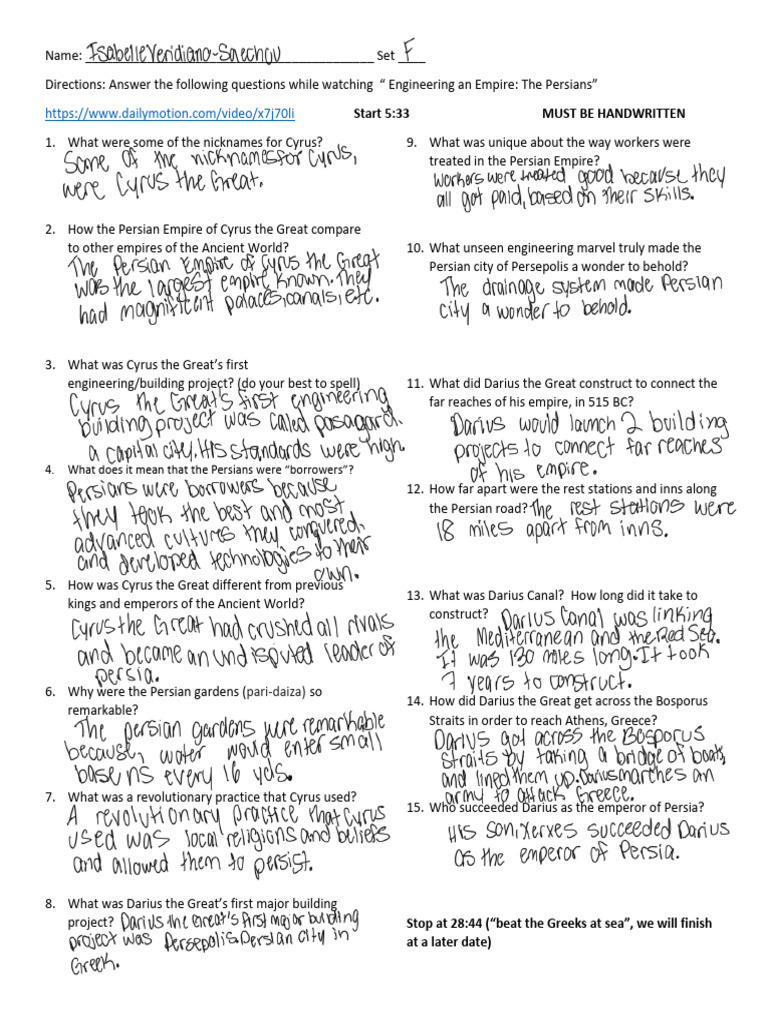 Name: Isabelle Veridiano-Saechou Set F
Directions: Answer the following questions while watching “ Engineering an Empire: The Persians”
https://www.dailymotion.com/video/x7j70li Start 5:33 MUST BE HANDWRITTEN
1. What were some of the nicknames for Cyrus?
Some of the nicknames for Cyrus,
were Cyrus the Great.
2. How the Persian Empire of Cyrus the Great compare
to other empires of the Ancient World?
The Persian Empire of Cyrus the Great
was the largest empire known. They
had magnificent palaces, canals, etc.
3. What was Cyrus the Great’s first
engineering/building project? (do your best to spell)
Cyrus the Great's first engineering
building project was called pasagard.
a capital city. His standards were high.
4. What does it mean that the Persians were “borrowers”?
Persians were borrowers because
they took the best and most
advanced cultures they conquered,
and developed technologies to their
own.
5. How was Cyrus the Great different from previous
kings and emperors of the Ancient World?
Cyrus the Great had crushed all rivals
and became an undisputed leader of
persia.
6. Why were the Persian gardens (pari-daiza) so
remarkable?
The persian gardens were remarkable
because, water would enter small
basens every 16 yds.
7. What was a revolutionary practice that Cyrus used?
A revolutionary practice that Cyrus
used was local religions and beliefs
and allowed them to persist.
8. What was Darius the Great’s first major building
project? Darius the Great's first major building
project was Persepolis. Persian city in
Greek.
9. What was unique about the way workers were
treated in the Persian Empire?
Workers were treated good because they
all got paid, based on their skills.
10. What unseen engineering marvel truly made the
Persian city of Persepolis a wonder to behold?
The drainage system made Persian
city a wonder to behold.
11. What did Darius the Great construct to connect the
far reaches of his empire, in 515 BC?
Darius would launch 2 building
projects to connect far reaches
of his empire.
12. How far apart were the rest stations and inns along
the Persian road? The rest stations were
18 miles apart from inns.
13. What was Darius Canal? How long did it take to
construct? Darius Canal was linking
the Mediterranean and the Red Sea.
It was 130 miles long. It took
7 years to construct.
14. How did Darius the Great get across the Bosporus
Straits in order to reach Athens, Greece?
Darius got across the Bosporus
Straits by taking a bridge of boats,
and lined them up. Darius marches an
army to attack Greece.
15. Who succeeded Darius as the emperor of Persia?
His son, Xerxes succeeded Darius
as the emperor of Persia.
Stop at 28:44 (“beat the Greeks at sea”, we will finish
at a later date)